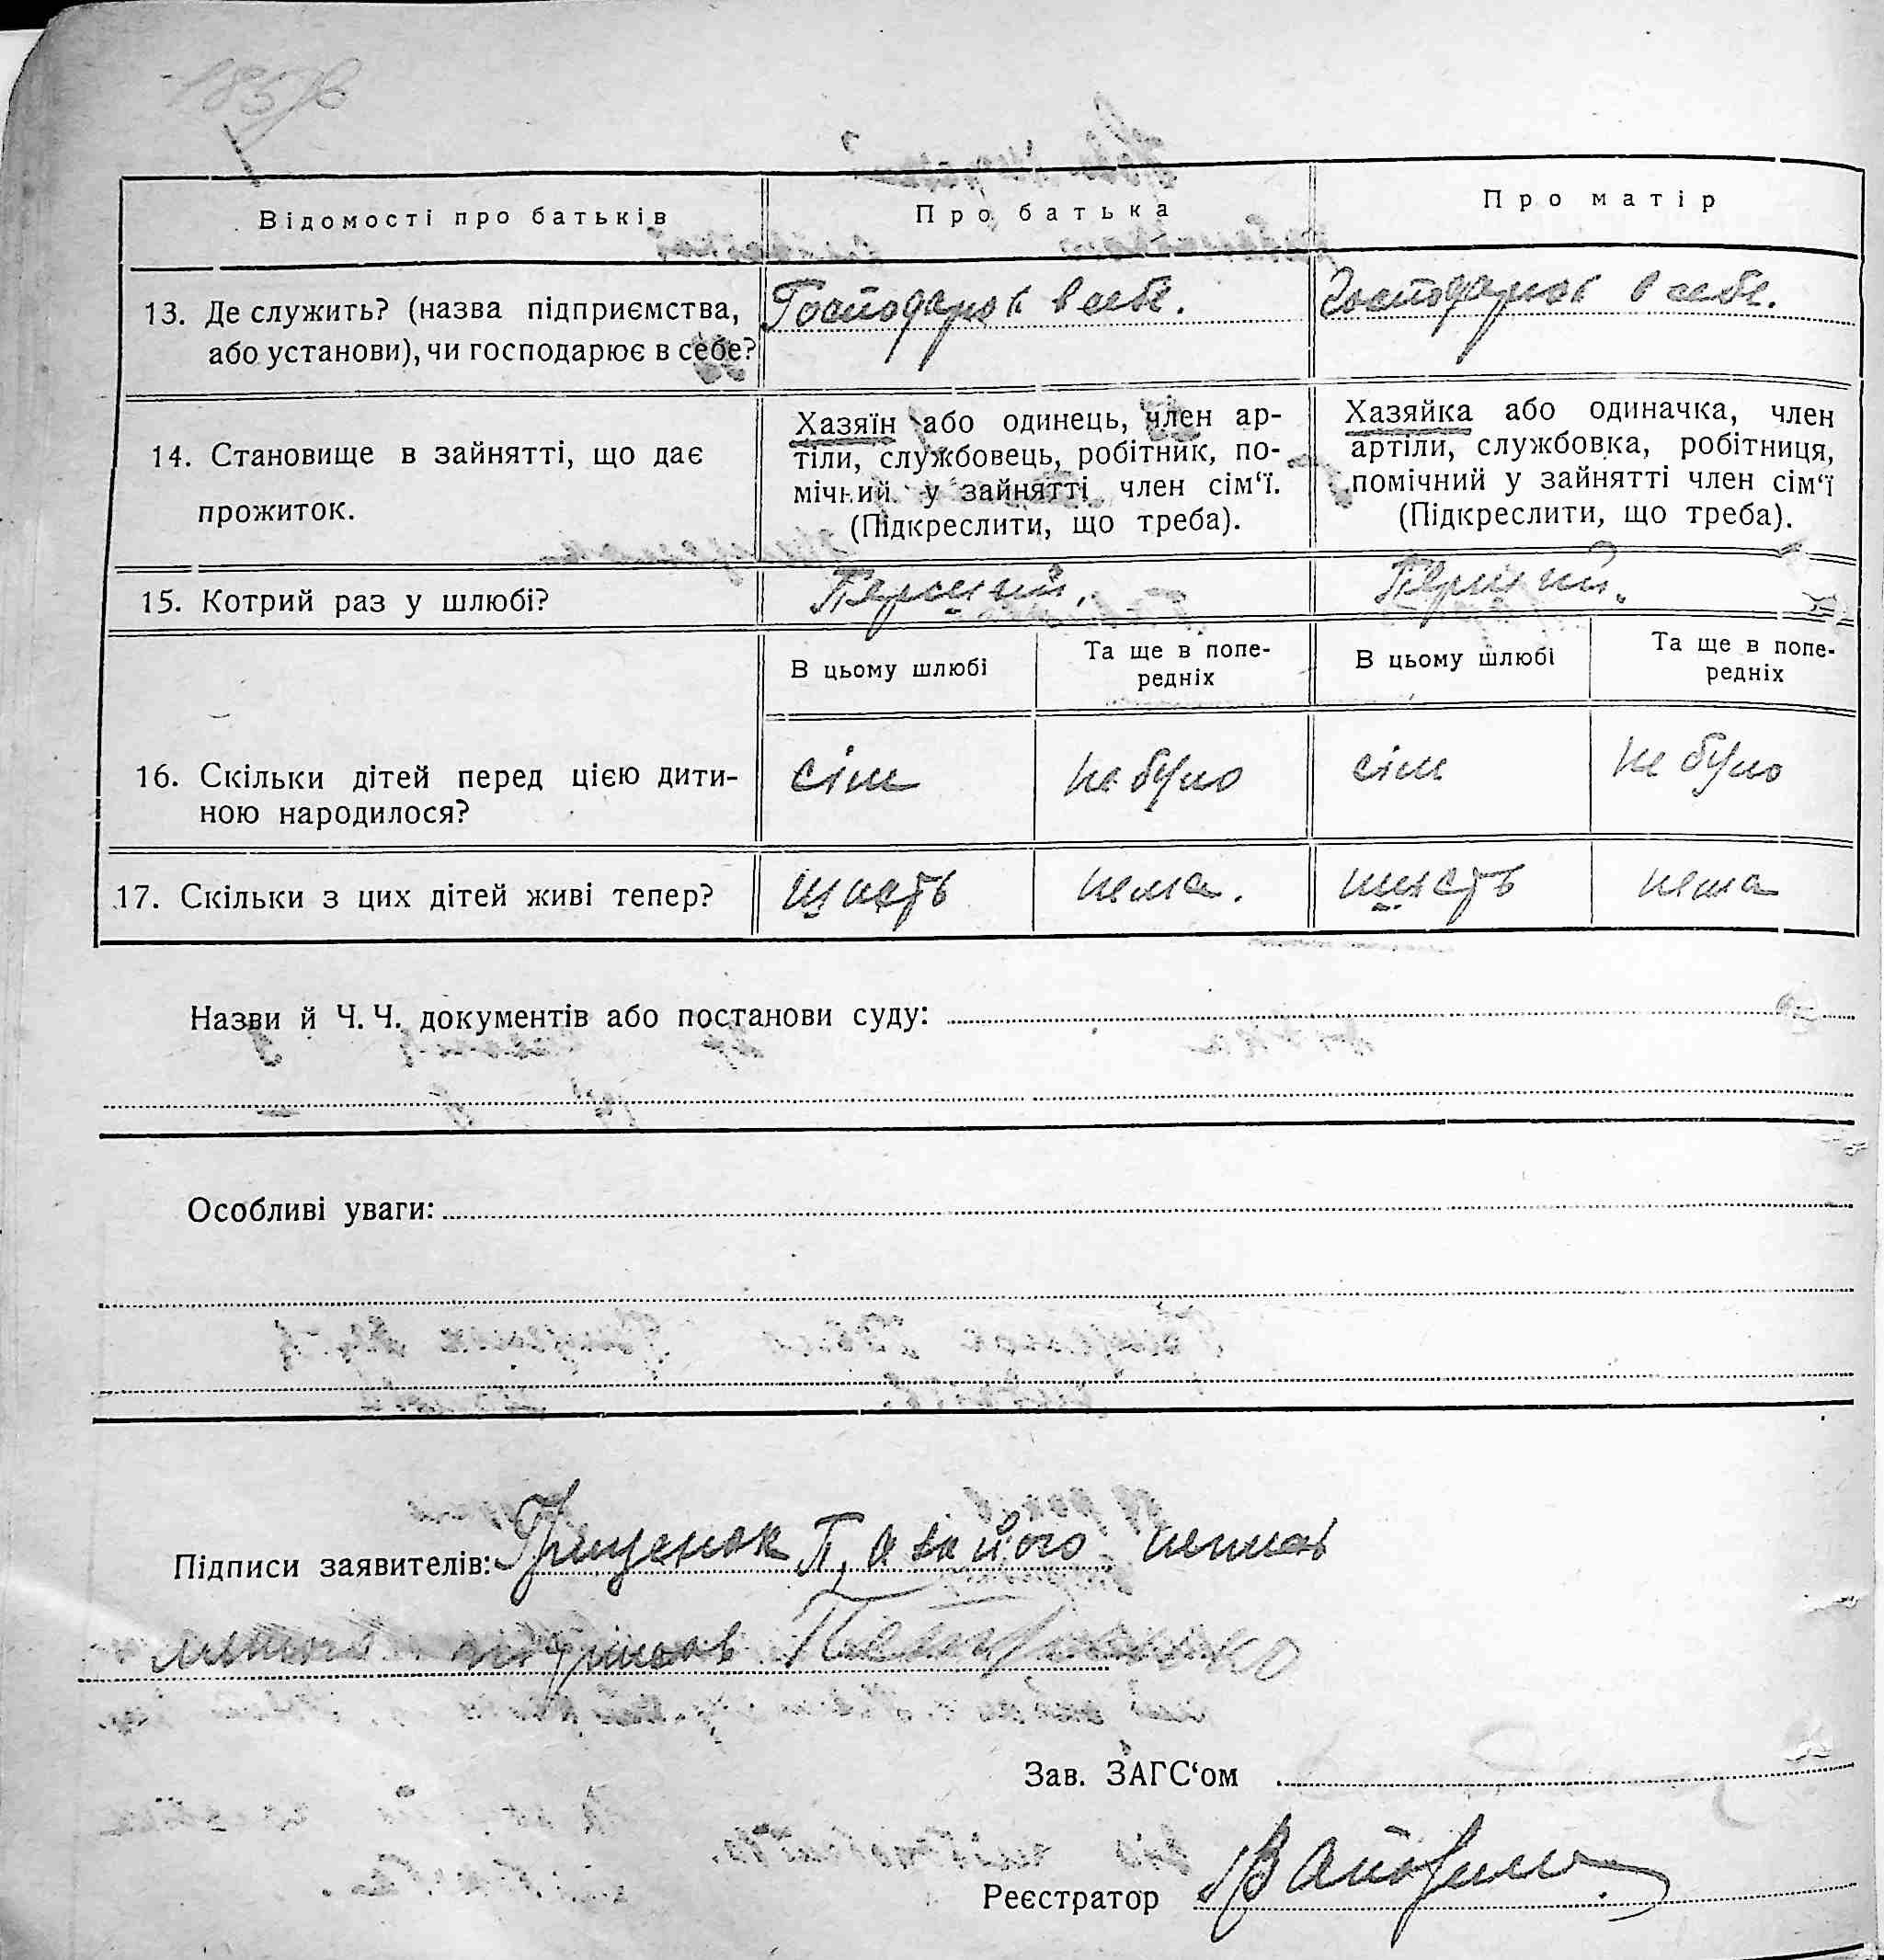 Відомості про батьків
Про батька
Про матір
13. Де служить? (назва підприємства, або установи), чи господарює в себе?
Господарює в себе.
Господарює в себе.
14. Становище в зайнятті, що дає прожиток.
Хазяїн або одинець, член ар-
тіли, службовець, робітник, по-
мічний у зайнятті член сім‘ї.
(Підкреслити, що треба).
Хазяйка або одиначка, член
артіли, службовка, робітниця,
помічний у зайнятті член сім‘ї
(Підкреслити, що треба).
15. Котрий раз у шлюбі?
Перший.
Перший.
В цьому шлюбі
Та ще в попе-
редніх
В цьому шлюбі
Та ще в попе-
редніх
16. Скільки дітей перед цією дити-
ною народилося?
сім
не було
сім
не було
17. Скільки з цих дітей живі тепер?
шість
нема.
шість
нема
Назви й Ч. Ч. документів або постанови суду:
Особливі уваги:
Підписи заявителів: Грищенок П, а за його
Зав. ЗАГС‘ом
Реєстратор